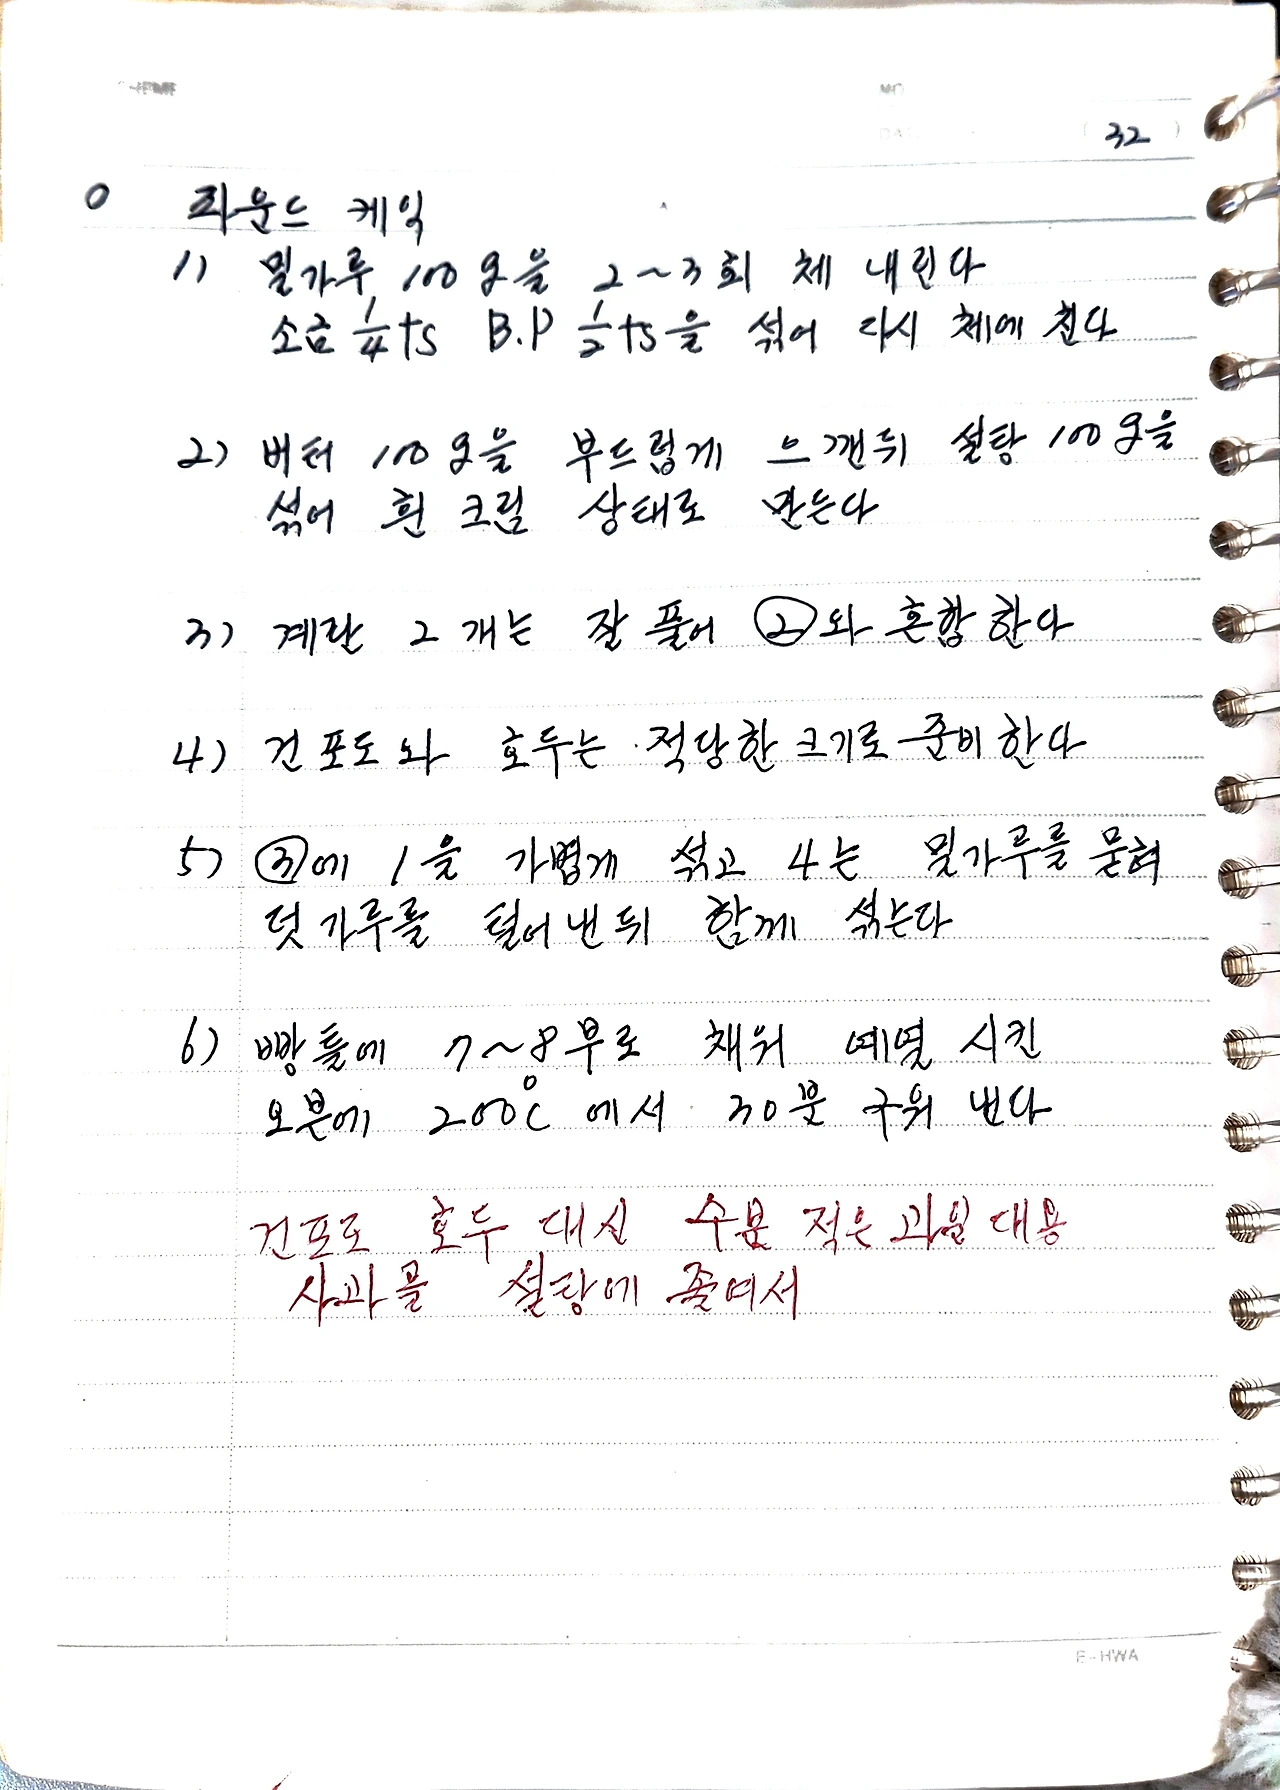 (32)
○ 파운드 케익
1) 밀가루 100g을 2~3회 체 내린다
소금 1/4ts B.P 1/2ts을 섞어 다시 체에 친다
2) 버터 100g을 부드럽게 으깬뒤 설탕 100g을
섞어 흰 크림 상태로 만든다
3) 계란 2개는 잘 풀어 ②와 혼합한다
4) 건포도와 호두는 적당한 크기로 준비한다
5) ③에 1을 가볍게 섞고 4는 밀가루를 묻혀
덧가루를 털어낸뒤 함께 섞는다
6) 빵틀에 7~8부로 채워 예열 시킨
오븐에 200℃에서 30분 구워 낸다
건포도 호두 대신 수분 적은 과일 대용
사과를 설탕에 졸여서
E-HWA